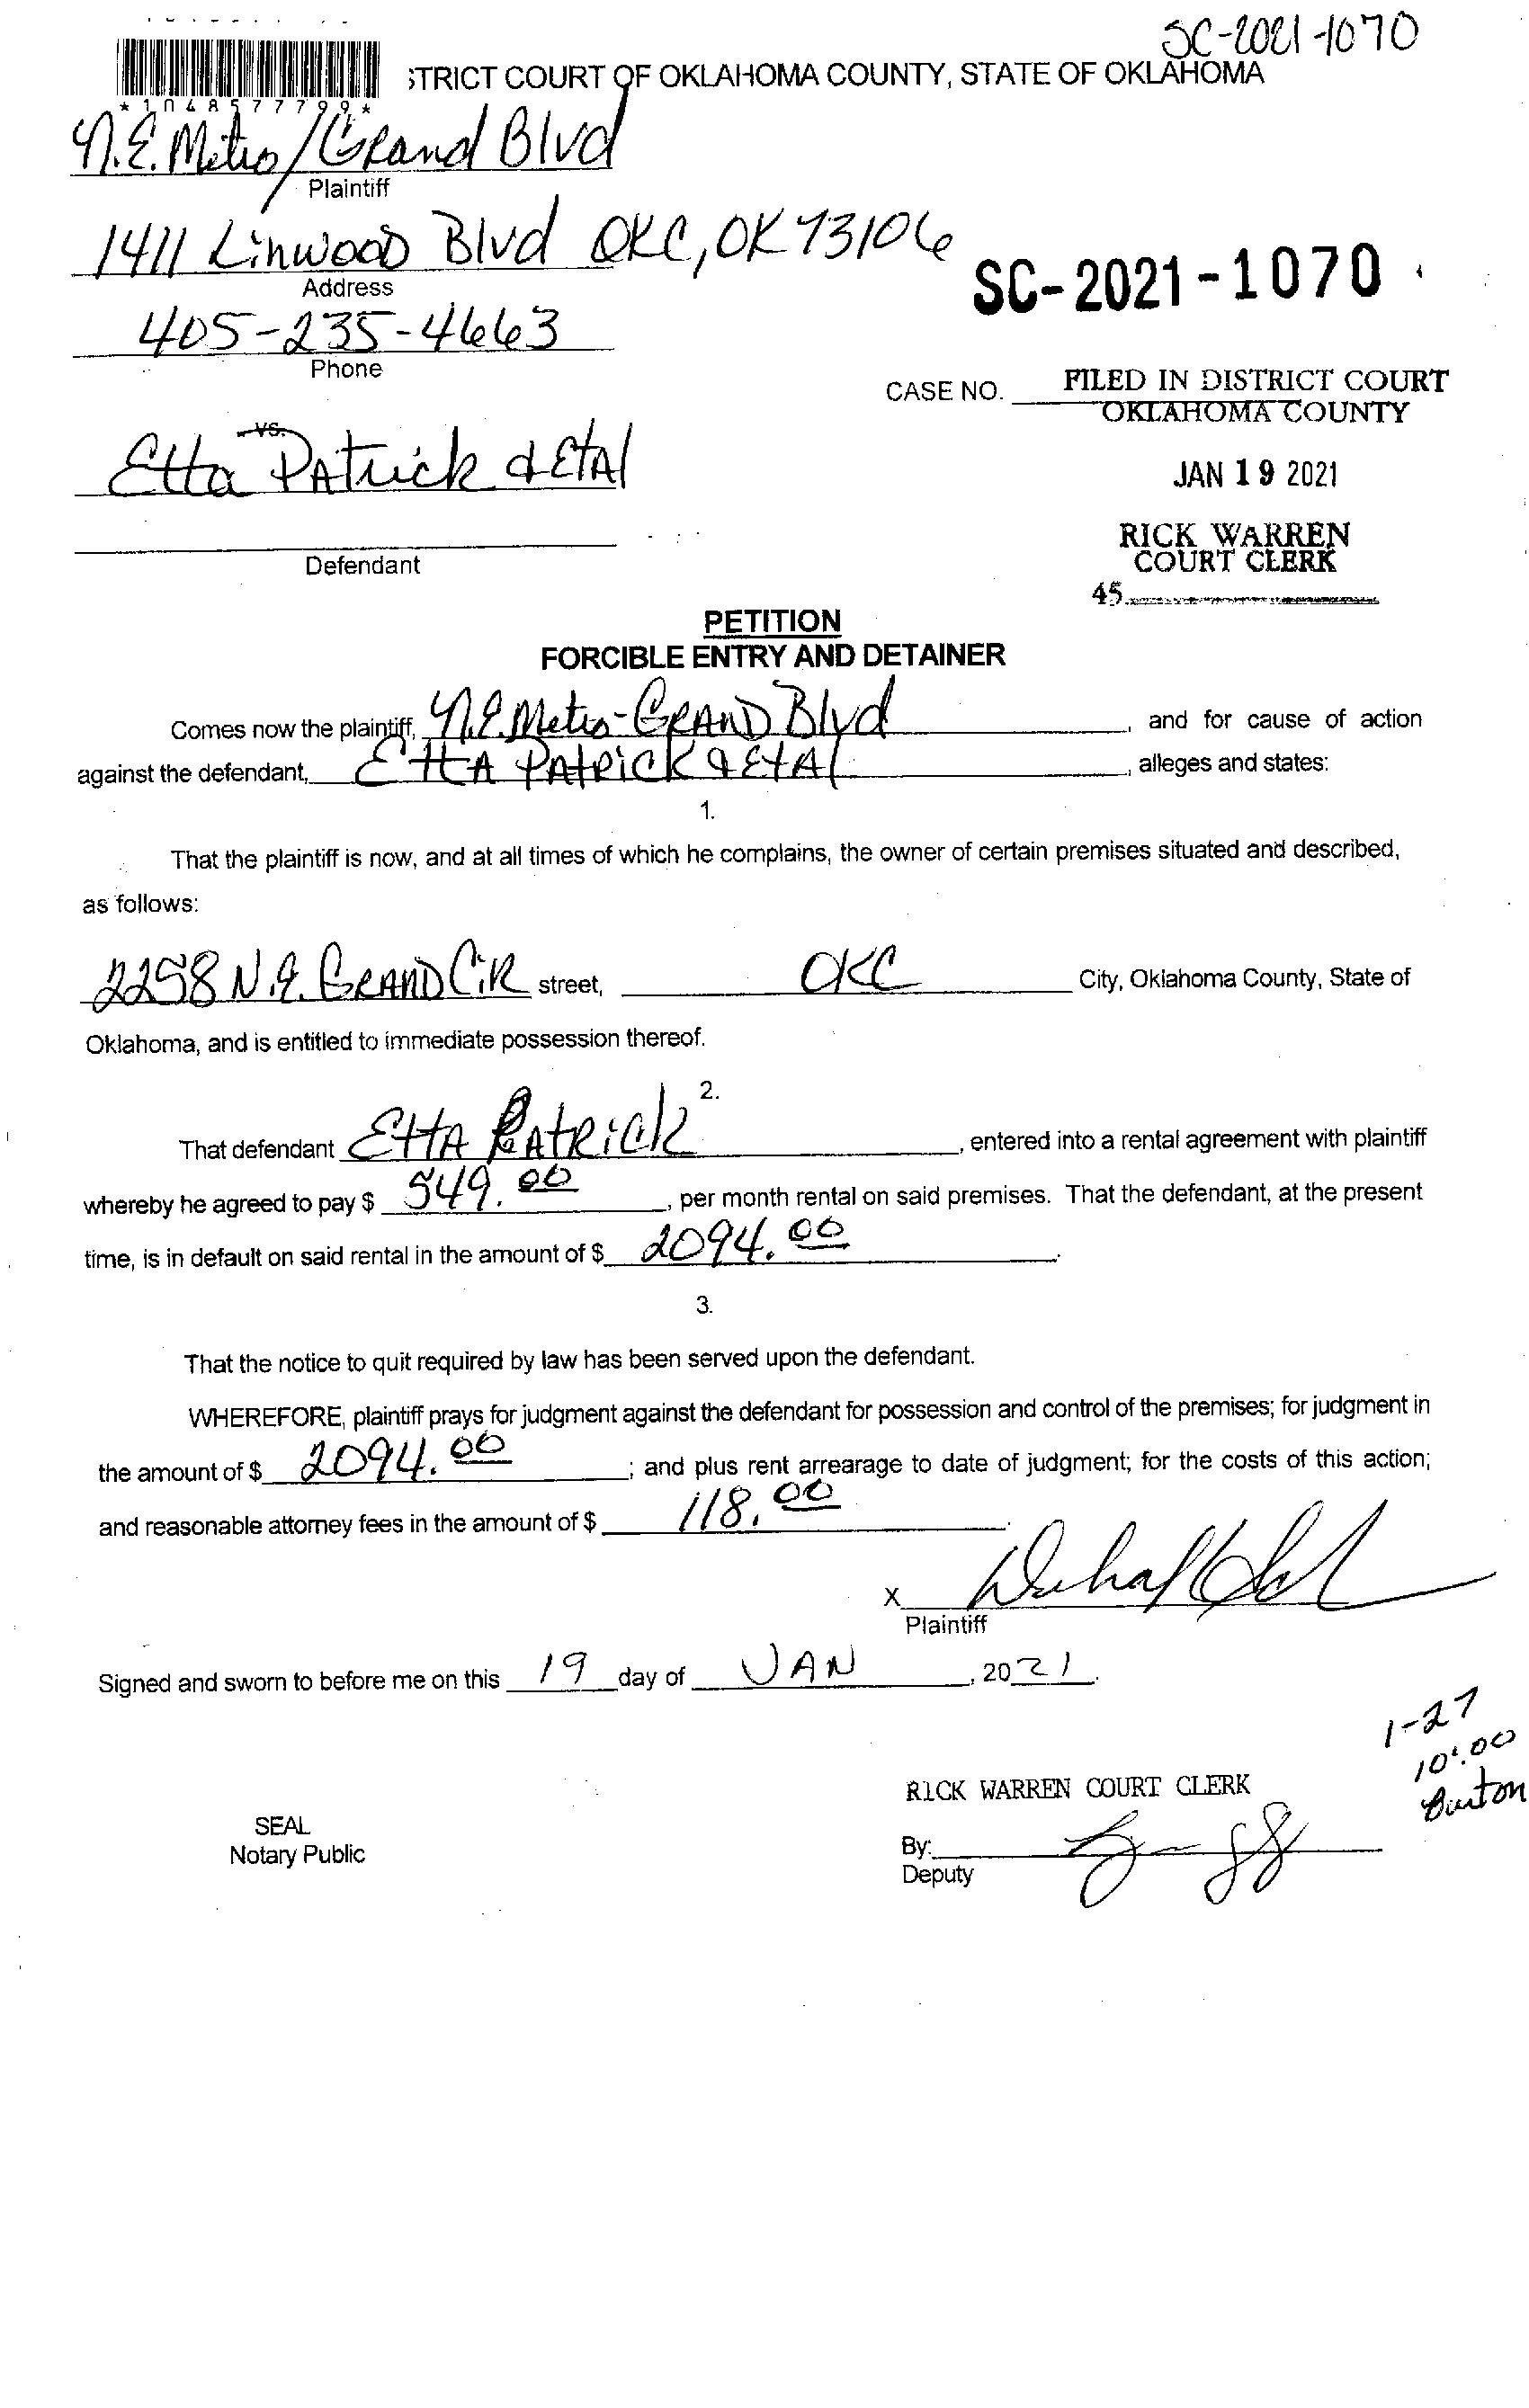 SC-2021-1070
STRICT COURT OF OKLAHOMA COUNTY, STATE OF OKLAHOMA
*1048577799*
N.E. Metro/Grand Blvd
Plaintiff
1411 Linwood Blvd OKC, OK 73106
Address
SC-2021-1070
405-235-4663
Phone
CASE NO. FILED IN DISTRICT COURT
OKLAHOMA COUNTY
vs.
Etta Patrick & Etal
JAN 19 2021
RICK WARREN
COURT CLERK
Defendant
45
PETITION
FORCIBLE ENTRY AND DETAINER
Comes now the plaintiff, N.E. Metro-Grand Blvd, and for cause of action
against the defendant, Etta Patrick & Etal, alleges and states:
1.
That the plaintiff is now, and at all times of which he complains, the owner of certain premises situated and described,
as follows:
2258 N.E. Grand Cir street, OKC City, Oklahoma County, State of
Oklahoma, and is entitled to immediate possession thereof.
2.
That defendant Etta Patrick, entered into a rental agreement with plaintiff
whereby he agreed to pay $ 549.00, per month rental on said premises. That the defendant, at the present
time, is in default on said rental in the amount of $ 2094.00.
3.
That the notice to quit required by law has been served upon the defendant.
WHEREFORE, plaintiff prays for judgment against the defendant for possession and control of the premises; for judgment in
the amount of $ 2094.00; and plus rent arrearage to date of judgment; for the costs of this action;
and reasonable attorney fees in the amount of $ 118.00.
X
Plaintiff
Signed and sworn to before me on this 19 day of JAN, 2021.
1-27
10:00
Burton
RICK WARREN COURT CLERK
SEAL
Notary Public
By:
Deputy